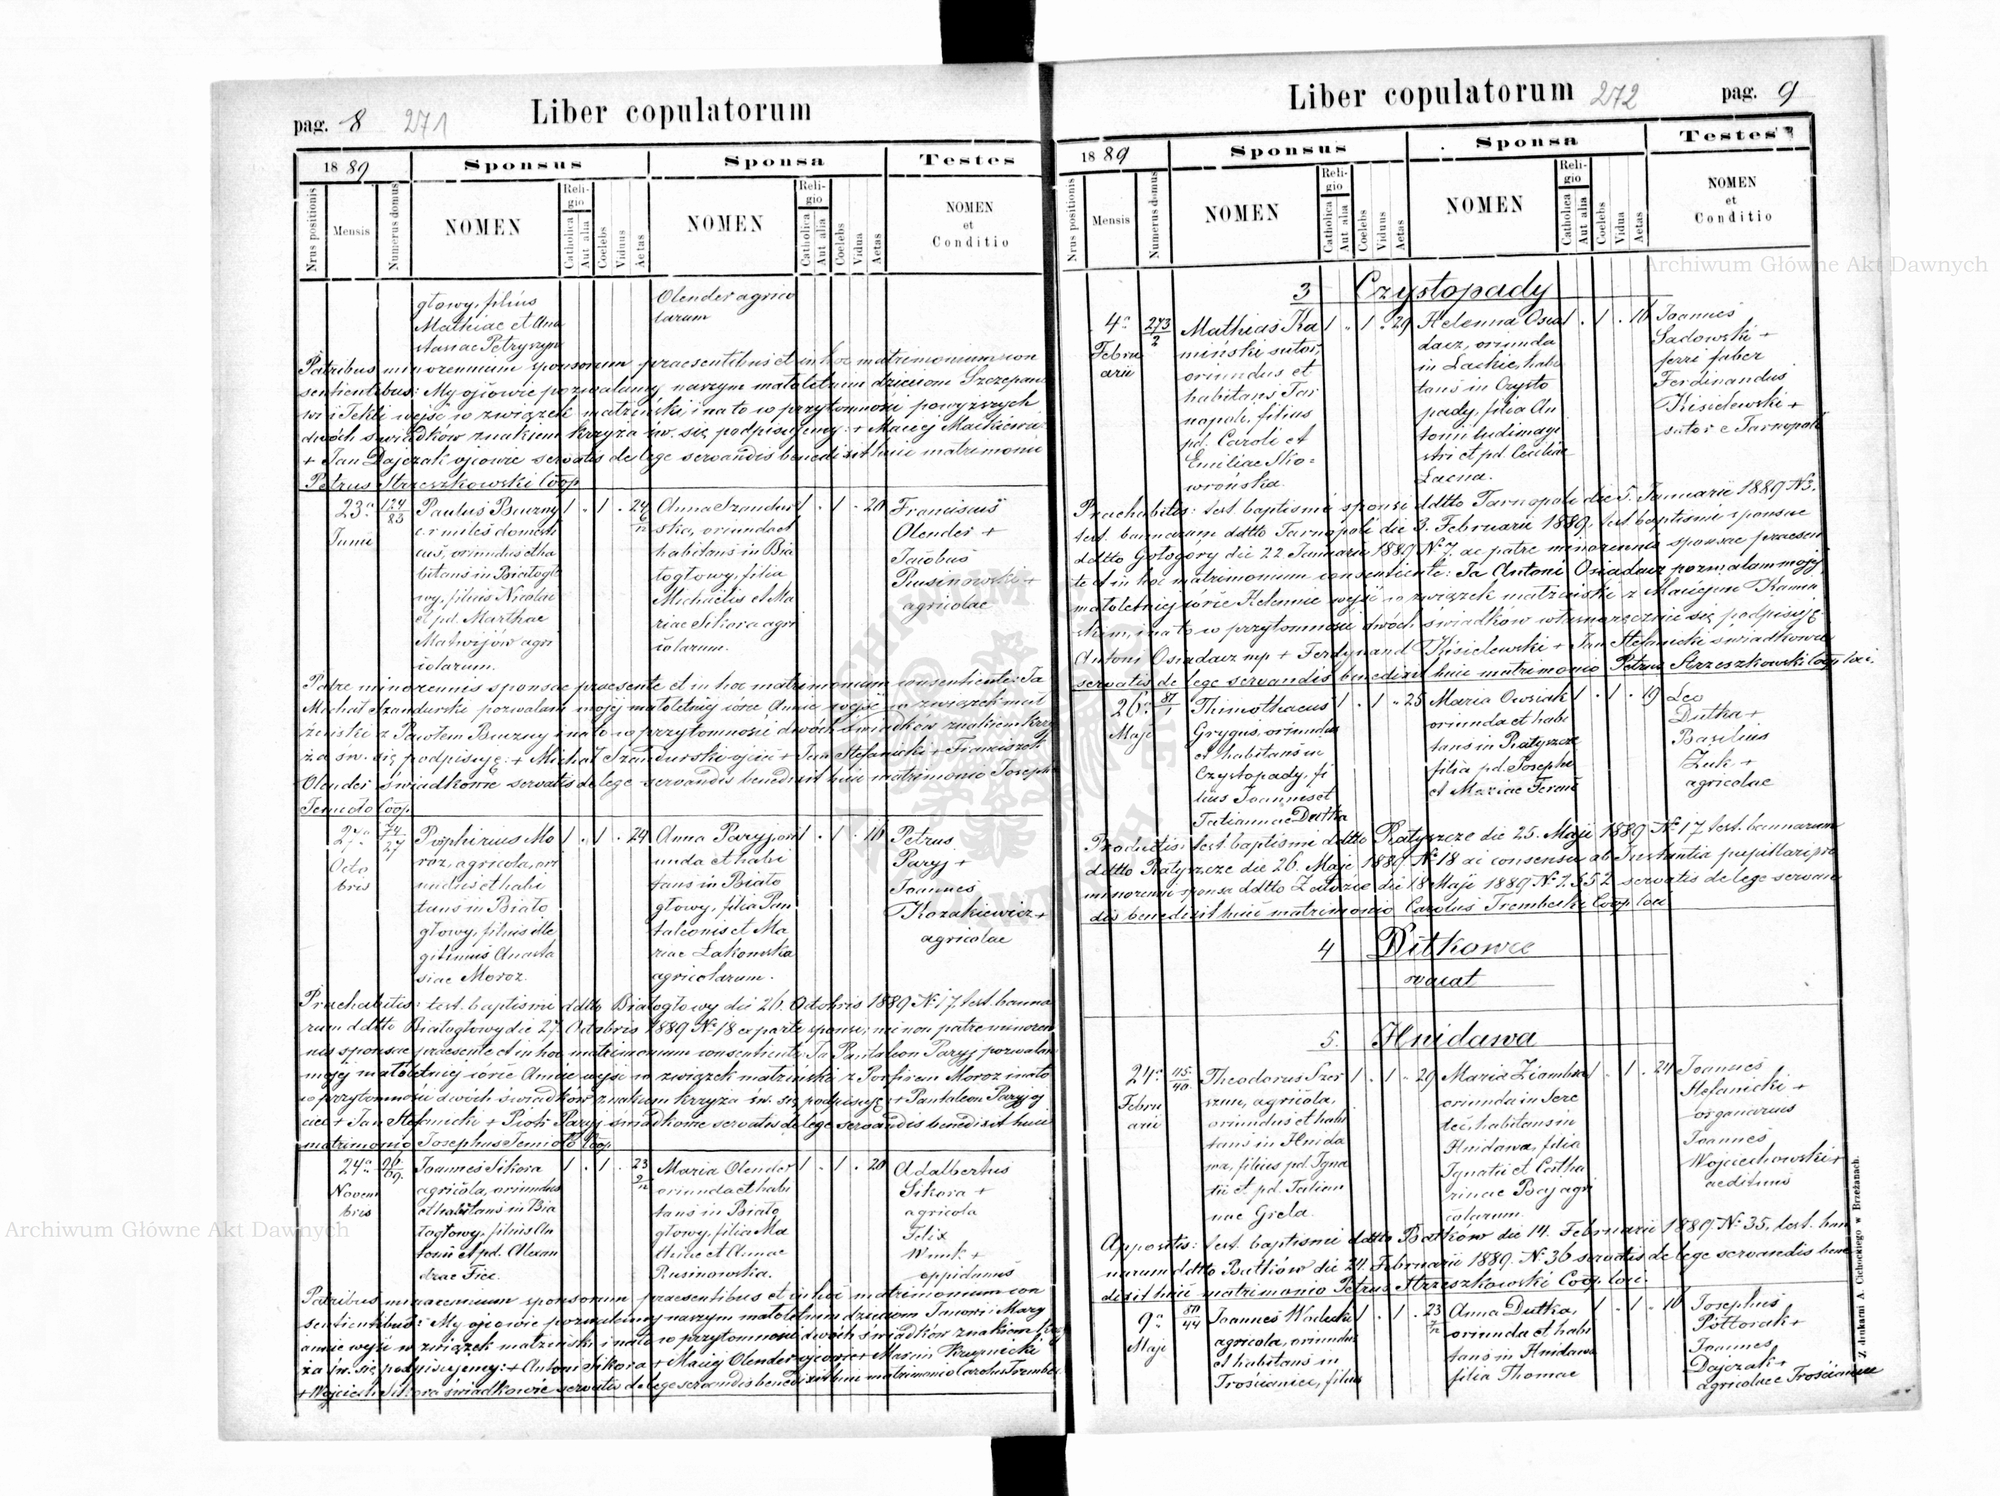 pag. 8 271 Liber copulatorum
1889 Sponsus Sponsa Testes
Nrus positionis Mensis Numerus domus NOMEN Religio Catholica Aut alia Coelebs Viduus Aetas NOMEN Religio Catholica Aut alia Coelebs Vidua Aetas NOMEN et Conditio
głowy, filius
Mathiae et Ana
stasiae Petryszyn
Olender agrico
larum
Patribus minorennium sponsorum praesentibus et in hoc matrimonium con
sentientibus: My ojcowie pozwalamy naszym małoletnim dzieciom Szczepano
wi i Tekli wejść w związek małżeński i na to w przytomności powyższych
dwóch świadków znakiem krzyża św. się podpisujemy: + Maciej
+ Jan Dajczak ojcowie servatis de lege servandis benedixit huic matrimonio
Petrus Strzeszkowski Coop.
23a Junii
124/83
Paulus Buczny
c. r. miles domesti
cus, oriundus et ha
bitans in Białogło
wy, filius Nicolai
et pd. Marthae
Matwijów agri
colarum.
1 . 1 . 24 6/12
Anna Szandur
ska, oriunda et
habitans in Bia
łogłowy, filia
Michaëlis et Ma
riae Sikora agri
colarum.
1 . 1 . 20
Franciscus
Olender +
Jacobus
Rusinowski +
agricolae
Patre minorennis sponsae praesente et in hoc matrimonium consentiente: Ja
Michał Szandurski pozwalam mojej małoletniej córce Annie wejść w związek mał
żeński z Pawłem Buczny i na to w przytomności dwóch świadków znakiem krzy
ża św. się podpisuję: + Michał Szandurski ojciec + Jan Stefanicki + Franciszek
Olender świadkowie servatis de lege servandis benedixit huic matrimonio Josephus
Temioło Coop.
27a Octo
bris
74/27
Porphirius Mo
roz, agricola, ori
undus et habi
tans in Biało
głowy, filius ille
gitimus Anasta
siae Moroz.
1 . 1 . 24
Anna Paryj, ori
unda et habi
tans in Biało
głowy, filia Pan
taleonis et Ma
riae Łakomska
agricolarum.
1 . 1 . 16
Petrus
Paryj +
Joannes
Kozakiewicz +
agricolae
Prachabitis: test. baptismi ddtto Białogłowy die 26. Octobris 1889 N. 17, test. banno
rum ddtto Białogłowy die 27. Octobris 1889 N. 18 ex parte sponsi, nec non patre minoren
nis sponsae praesente et in hoc matrimonium consentiente: Ja Pantaleon Paryj pozwalam
mojej małoletniej córce Annie wejść w związek małżeński z Porfirem Moroz i na to
w przytomności dwóch świadków znakiem krzyża św. się podpisuję + Pantaleon Paryj oj
ciec + Jan Stefanicki + Piotr Paryj świadkowie servatis de lege servandis benedixit huic
matrimonio Josephus Temioło Coop.
24a
Novem
bris
96/69
Joannes Sikora
agricola, oriundus
et habitans in Bia
łogłowy, filius An
tonii et pd. Alexan
drae Fice.
1 . 1 . 23 2/12
Maria Olender
oriunda et habi
tans in Biało
głowy, filia Ma
thiae et Annae
Rusinowska.
1 . 1 . 20
Adalbertus
Sikora +
agricola
Felix
+
oppidanus
Patribus minorennium sponsorum praesentibus et in hoc matrimonium con
sentientibus: My ojcowie pozwalamy naszym małoletnim dzieciom Janowi i Mary
annie wejść w związek małżeński i na to w przytomności dwóch świadków znakiem krzy
ża św. się podpisujemy: + Antoni Sikora + Maciej Olender ojcowie + Marcin
+ Wojciech Sikora świadkowie servatis de lege servandis benedixit huic matrimonio Carolus
Liber copulatorum 272 pag. 9
1889 Sponsus Sponsa Testes
Nrus positionis Mensis Numerus domus NOMEN Religio Catholica Aut alia Coelebs Viduus Aetas NOMEN Religio Catholica Aut alia Coelebs Vidua Aetas NOMEN et Conditio
3 Czystopady
4a
Febru
arii
273/2
Mathias Ka
miński sutor,
oriundus et
habitans Tar
nopoli, filius
pd. Caroli et
Emiliae Sko=
wrońska.
1 . 1 . 29
Helenna Osia
dacz, oriunda
in Lackie, habi
tans in Czysto
pady, filia An
tonii ludimagi
stri et pd. Ceciliae
Łacna.
1 . 1 . 18
Joannes
Sadowski +
ferri faber
Ferdinandus
Kisielewski +
sutor e Tarnopoli
Prachabitis: test. baptismi sponsi ddtto Tarnopoli die 5. Januarii 1889 N. 3.
test. bannorum ddtto Tarnopoli die 3. Februarii 1889, test. baptismi sponsae
ddtto Gołogóry die 22. Januarii 1889 N. 7. ac patre minorennis sponsae praesen
te et in hoc matrimonium consentiente: Ja Antoni Osiadacz pozwalam mojej
małoletniej córce Helennie wejść w związek małżeński z Maciejem Kamiń
skim, i na to w przytomności dwóch świadków własnoręcznie się podpisuję
Antoni Osiadacz mp + Ferdynand Kisielewski + Jan Stefanicki świadkowie
servatis de lege servandis benedixit huic matrimonio Petrus Strzeszkowski Coop. loci.
26a
Maji
87/1
Thimothaeus
Grygus, oriundus
et habitans in
Czystopady, fi
lius Joannis et
Tatiannae Dutka
1 . 1 . 25
Maria Owsiak
oriunda et habi
tans in Ratyszcze
filia pd. Josephi
et Mariae Ferenc
1 . 1 . 19
Leo
Dutka +
Basilius
Żuk +
agricolae
Productis: test. baptismi ddtto Ratyszcze die 25. Maji 1889 N. 17. test. bannorum
ddtto Ratyszcze die 26. Maji 1889 N. 18 ac consensu ab Instantia pupillari pro
minorenni sponsa ddtto Załozce die 18 Maji 1889 N. 1.552 servatis de lege servan
dis benedixit huic matrimonio Carolus Trembecki Coop. loci
4 Ditkowce
vacat
5. Hnidawa
24a
Febru
arii
115/40
Theodorus Szer
szun, agricola,
oriundus et habi
tans in Hnida
wa, filius pd. Igna
tii et pd. Tatian
nae Grela.
1 . 1 . 29
Maria Ziomb
oriunda in Sere
teć, habitans in
Hnidawa, filia
Ignatii et Catha
rinae Baj agri
colarum.
1 . 1 . 24
Joannes
Stefanicki +
organarius
Joannes
Wojciechowski +
aedituus
Appositis: test. baptismi ddtto Batków die 14. Februarii 1889 N. 35, test. ban
norum ddtto Batków die 24. Februarii 1889. N. 36 servatis de lege servandis bene
dixit huic matrimonio Petrus Strzeszkowski Coop. loci.
9a
Maji
80/44
Joannes
agricola, oriundus
et habitans in
Trościaniec, filius
1 . 1 . 23 7/12
Anna Dutka,
oriunda et habi
tans in Hnidawa
filia Thomae
1 . 1 . 16
Josephus
Półtorak +
Joannes
Dajczak +
agricolae e Trościaniec
Z drukarni A. Cichockiego w Brzeżanach.
Archiwum Główne Akt Dawnych
Archiwum Główne Akt Dawnych